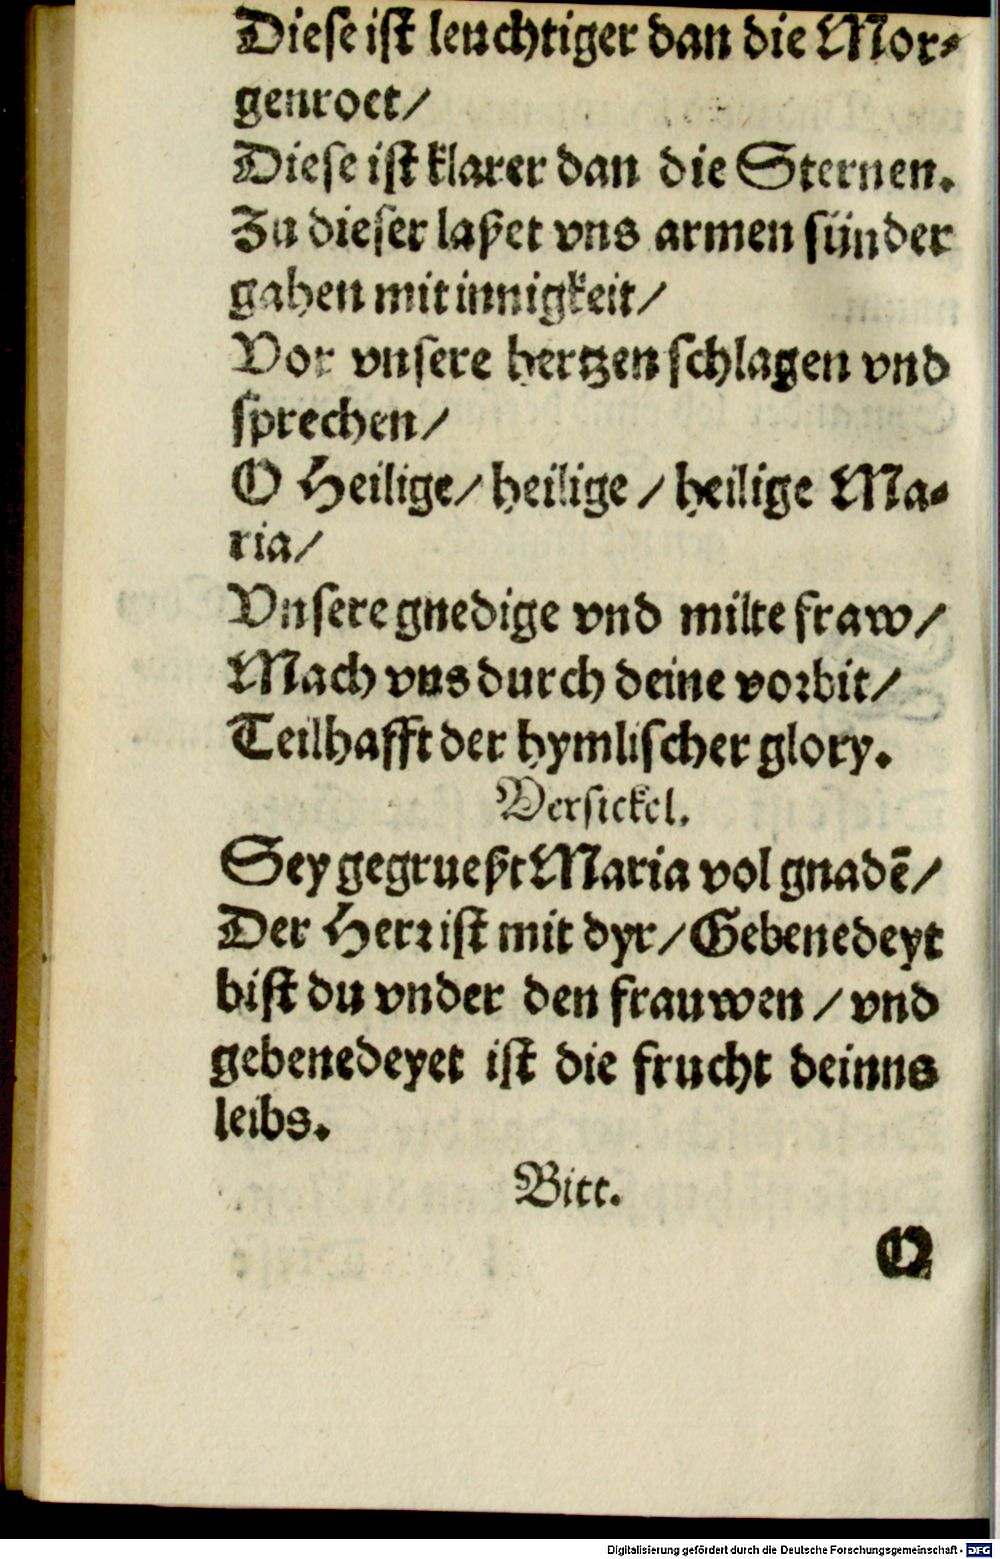 Dieſe iſt leuchtiger dan die Mor⸗
genroet/
Dieſe iſt klarer dan die Sternen.
Zu dieſer laßet vns armen ſünder
gahen mit innigkeit/
Vor vnſere hertzen ſchlagen vnd
ſprechen/
O Heilige/ heilige / heilige Ma⸗
ria/
Vnſere gnedige vnd milte fraw/
Mach vns durch deine vorbit/
Teilhafft der hymliſcher glory.
Verſickel.
Sey gegrueßt Maria vol gnadē/
Der Herr iſt mit dyr/ Gebenedeyt
biſt du vnder den frauwen / vnd
gebenedeyet iſt die frucht deinns
leibs.
Bitt.
O
Digitalisierung gefördert durch die Deutsche Forschungsgemeinschaft - DFG